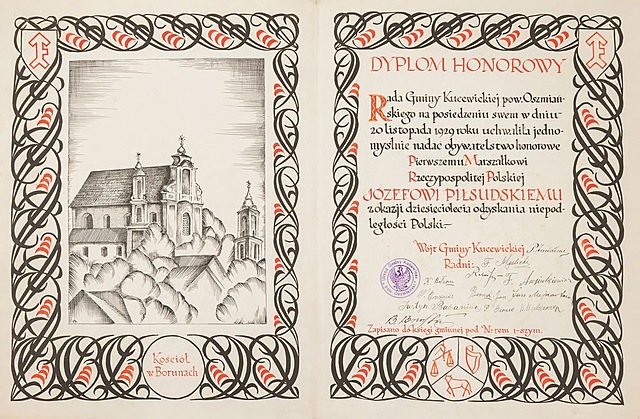 Kościół
w Borunach
DYPLOM HONOROWY
Rada Gminy Kucewickiej pow. Oszmiań-
skiego na posiedzeniu swem w dniu
20 listopada 1929 roku uchwaliła jedno-
myślnie nadać obywatelstwo honorowe
Pierwszemu Marszałkowi
Rzeczypospolitej Polskiej
JÓZEFOWI PIŁSUDSKIEMU
z okazji dziesięciolecia odzyskania niepod-
ległości Polski.—
Wójt Gminy Kucewickiej
Radni:
Zapisano do księgi gminnej pod Nr-rem 1-szym.